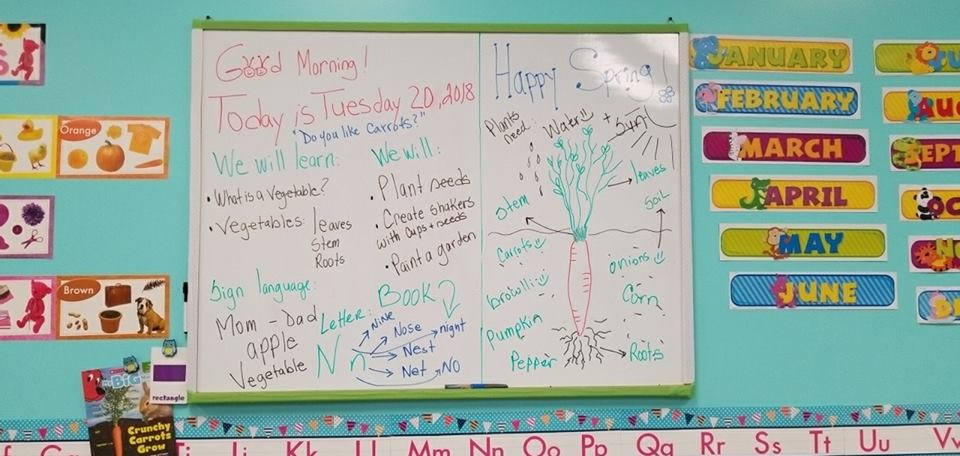 Good Morning!
Today is Tuesday 20, 2018
"Do you like Carrots?"
We will learn:
• What is a Vegetable?
• Vegetables: leaves
Stem
Roots
We will:
• Plant seeds
• Create shakers
with cups + seeds
• Paint a garden
Sign language:
Mom - Dad
apple
Vegetable
BOOK
Letter:
N n
Nine
Nose
night
Nest
Net
NO
Happy Spring!
Plants
need:
Water
+ Sun
leaves
Stem
Soil
Carrots
onions
browlli
Corn
Pumpkin
Pepper
Roots
JANUARY
FEBRUARY
MARCH
APRIL
MAY
JUNE
Orange
Brown
rectangle
BiG
Crunchy
Carrots
Grow
Kk
Mm Nn Oo Pp Qq Rr Ss Tt Uu